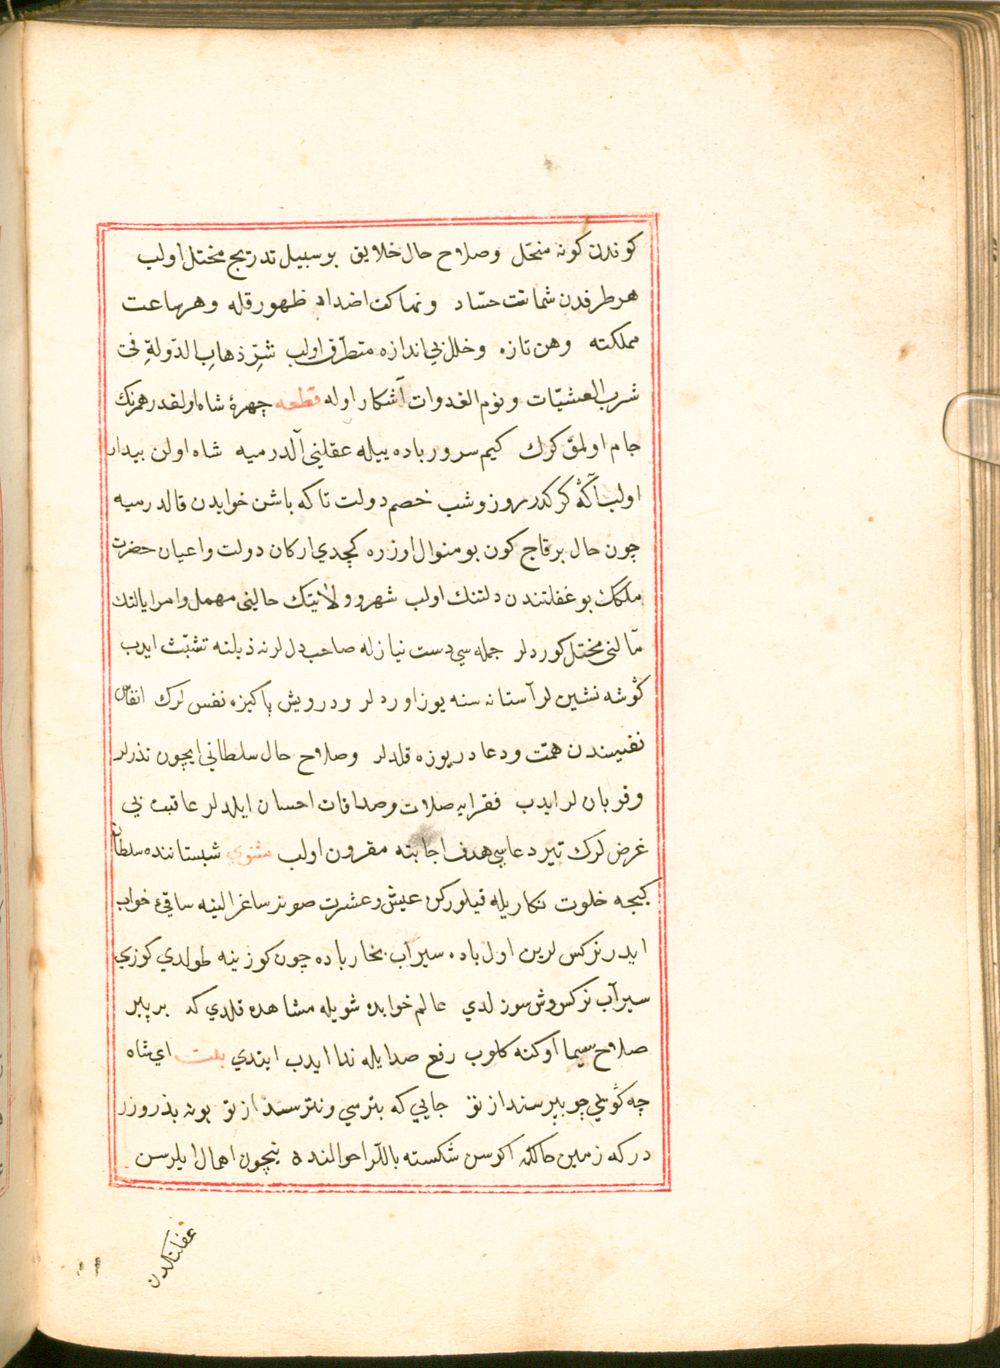 كوندن كونه منحل وصلاح حال خلايق بر سبيل تدريج مختل اولب
هر طرفدن شماتت حسّاد ونماكت اضداد ظهور قله وهر ساعت
مملكته وهن تازه وخلل بى اندازه متطرّق اولب شرّ ذهاب الدّولةِ فى
شرب العشيّات ونوم الغدوات آشكار اوله قطعه چهرۀ شاه اولقدر همرنك
جام اولمق كرك كيم سرور باده بيله عقلنى آلدرميه شاه اولن بيدار
اولب آكَه كركدر روز وشب خصم دولت تاكه باشن خوابدن قالدرميه
چون حال بر قاچ كون بو منوال اوزره كچدي اركان دولت واعيان حضرت
ملكك بو غفلتندن دلتنك اولب شهر وولايتك حالينى مهمل وامر ايالتك
مآلنى مختل كوردلر جمله سي دست نيازله صاحب دللرنه ذيلنه تشبّث ايدب
كوشه نشينلر آستانه سنه يوز اوردلر ودرويش پاكيزه نفسلرك انفاس
نفيسندن همّت ودعا دريوزه قلدلر وصلاح حال سلطانى ايچون نذرلر
وقربانلر ايدب فقرايه صلات وصدقات احسان ايلدلر عاقبت بى
غرضلرك تير دعاسي هدف اجابته مقرون اولب مثنوي شبستاننده سلطان
كيجه خلوت نكاريله قيلوركن عيش وعشرت صونر ساغر الينه ساقئ خواب
ايدر نركسلرين اول باده سيرآب بخار باده چون كوزينه طولدي كوزي
سيرآب نركس وش سوزلدي عالم خوابده شويله مشاهده قلدي كه بر پير
صلاح سيما اوكنه كلوب رفع صدايله ندا ايدب ايتدي بيت اي شاه
چه كوئي چو بپرسند از تو جايي كه بترسي ونترسند از تو بونه بذر وزر
دركه زمين حاكنه اكرسن شكسته باللر احوالنده نيچون اهمال ايلرسن
غفلتكدن